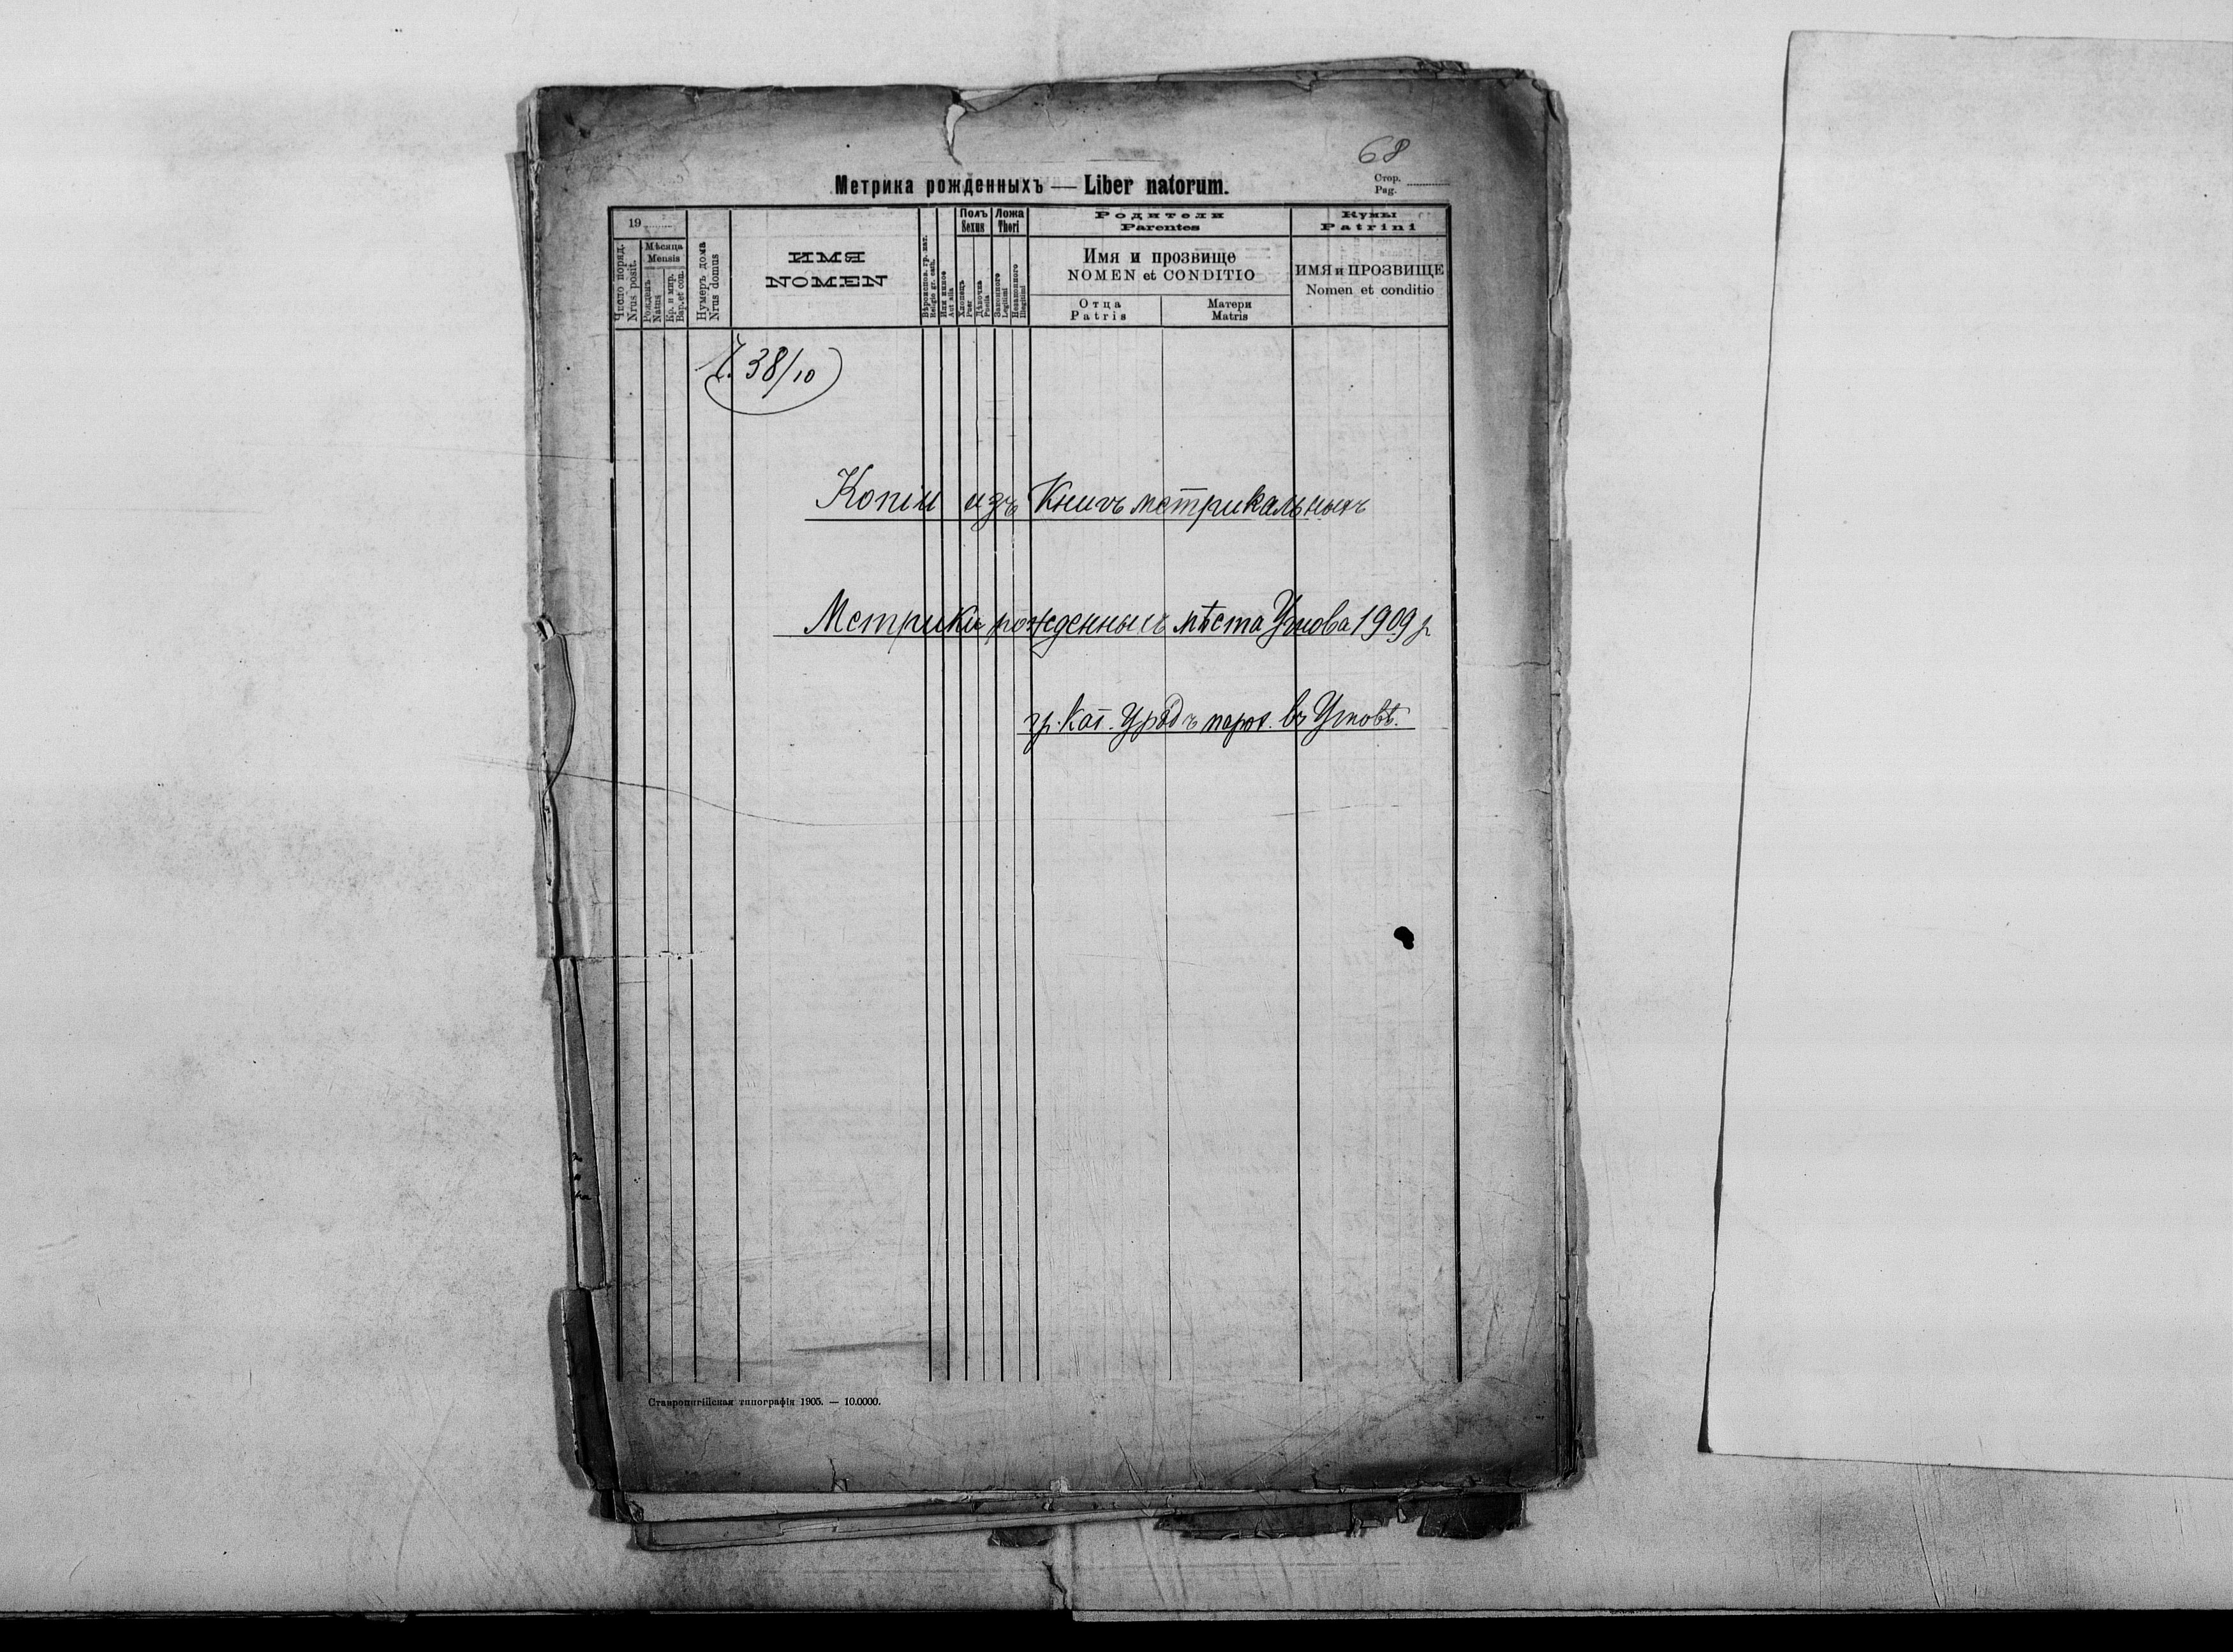 68
Метрика рожденныхъ — Liber natorum.
Стор.
Pag.
19
Число поряд.
Nrus posit.
Мѣсяца
Mensis
Рожденъ
Natus
Кр. и мир.
Bap. et con.
Нумеръ дома
Nrus domus
ИМЯ
NOMEN
Вѣроиспов. гр. кат.
Religio gr. cath.
Или инное
Aut alia
Полъ
Sexus
Хлопецъ
Puer
Дѣвочка
Puella
Ложа
Thori
Законного
Legitimi
Незаконного
Illegitimi
Родители
Parentes
Имя и прозвище
NOMEN et CONDITIO
Отца
Patris
Матери
Matris
Кумы
Patrini
ИМЯ и ПРОЗВИЩЕ
Nomen et conditio
38/10
Копіи изъ Книгъ метрикальныхъ
Метрика рожденныхъ мѣста Угнова 1909 р
гр. кат. Урядъ парох. въ Угновѣ.
Ставропигійская типографія 1905. — 10.0000.